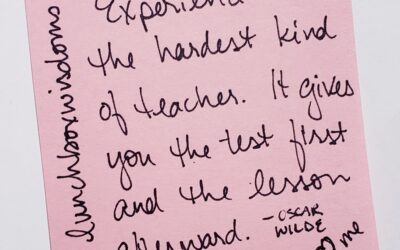 Experien
the hardest kind
of teacher. It gives
you the test first
and the lesson
afterward. -OSCAR
WILDE
me
lunchboxwisdoms